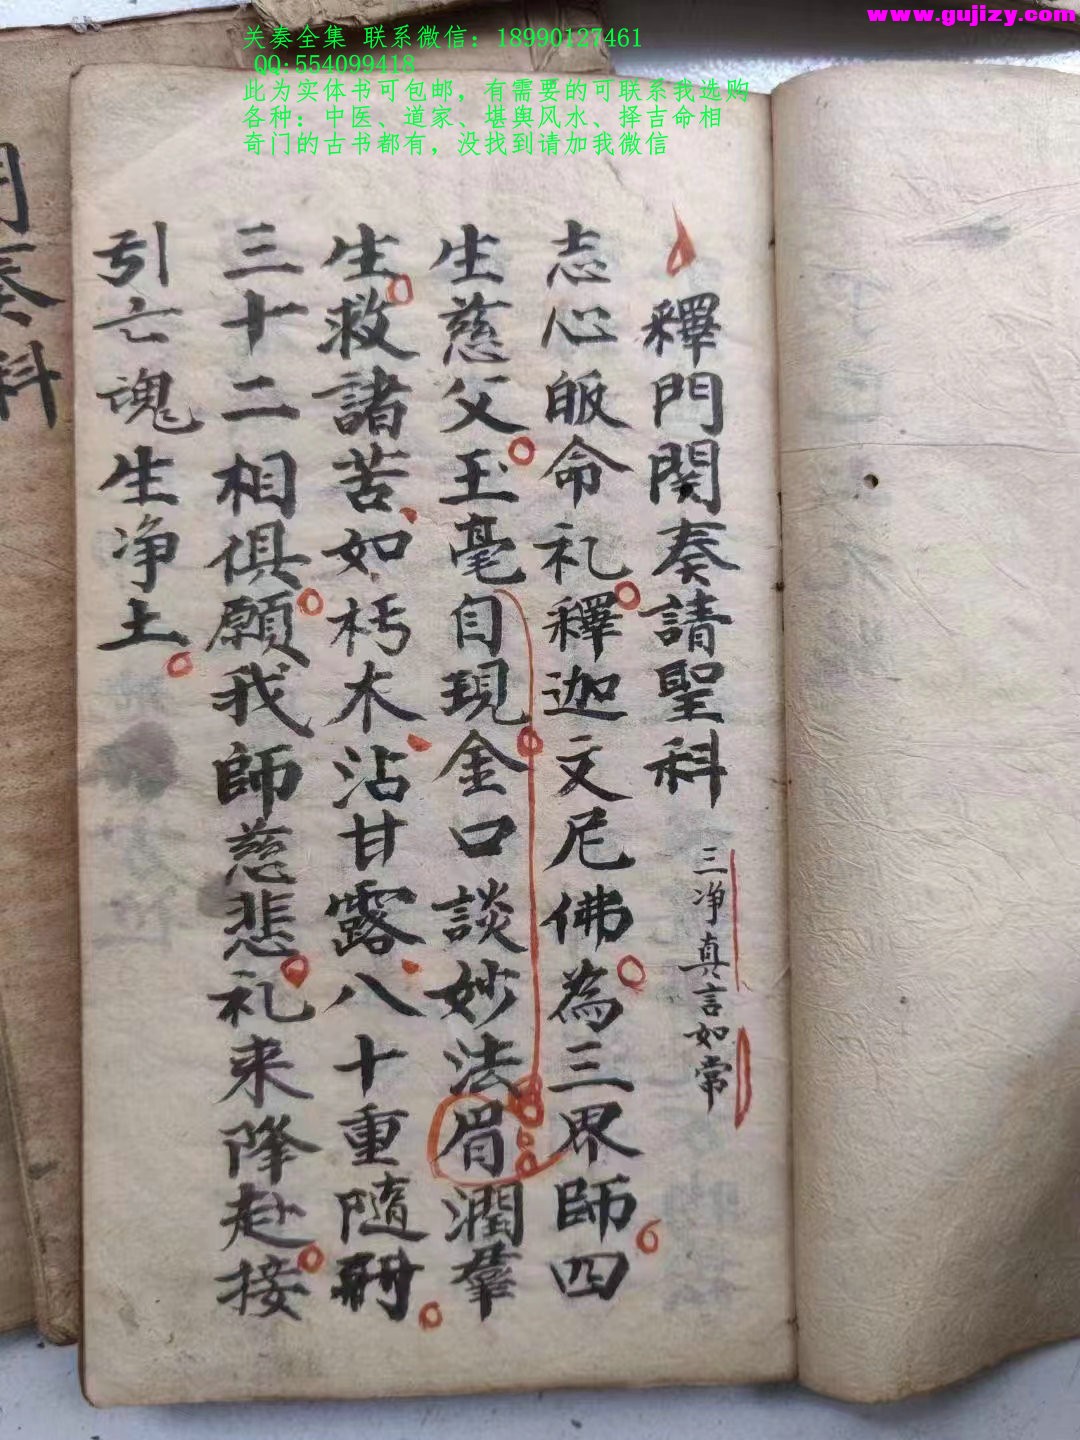 www.gujizy.com
关奏全集 联系微信：18990127461
QQ:554099418
此为实体书可包邮，有需要的可联系我选购
各种：中医、道家、堪舆风水、择吉命相
奇门的古书都有，没找到请加我微信
釋門関奏請聖科 三净真言如常
志心皈命礼釋迦文尼佛為三界師四
生慈父玉毫自現金口談妙法眉潤羣
生救諸苦如朽木沾甘露八十重隨
三十二相俱願我師慈悲礼来降赴接
引亡魂生净土
奏科